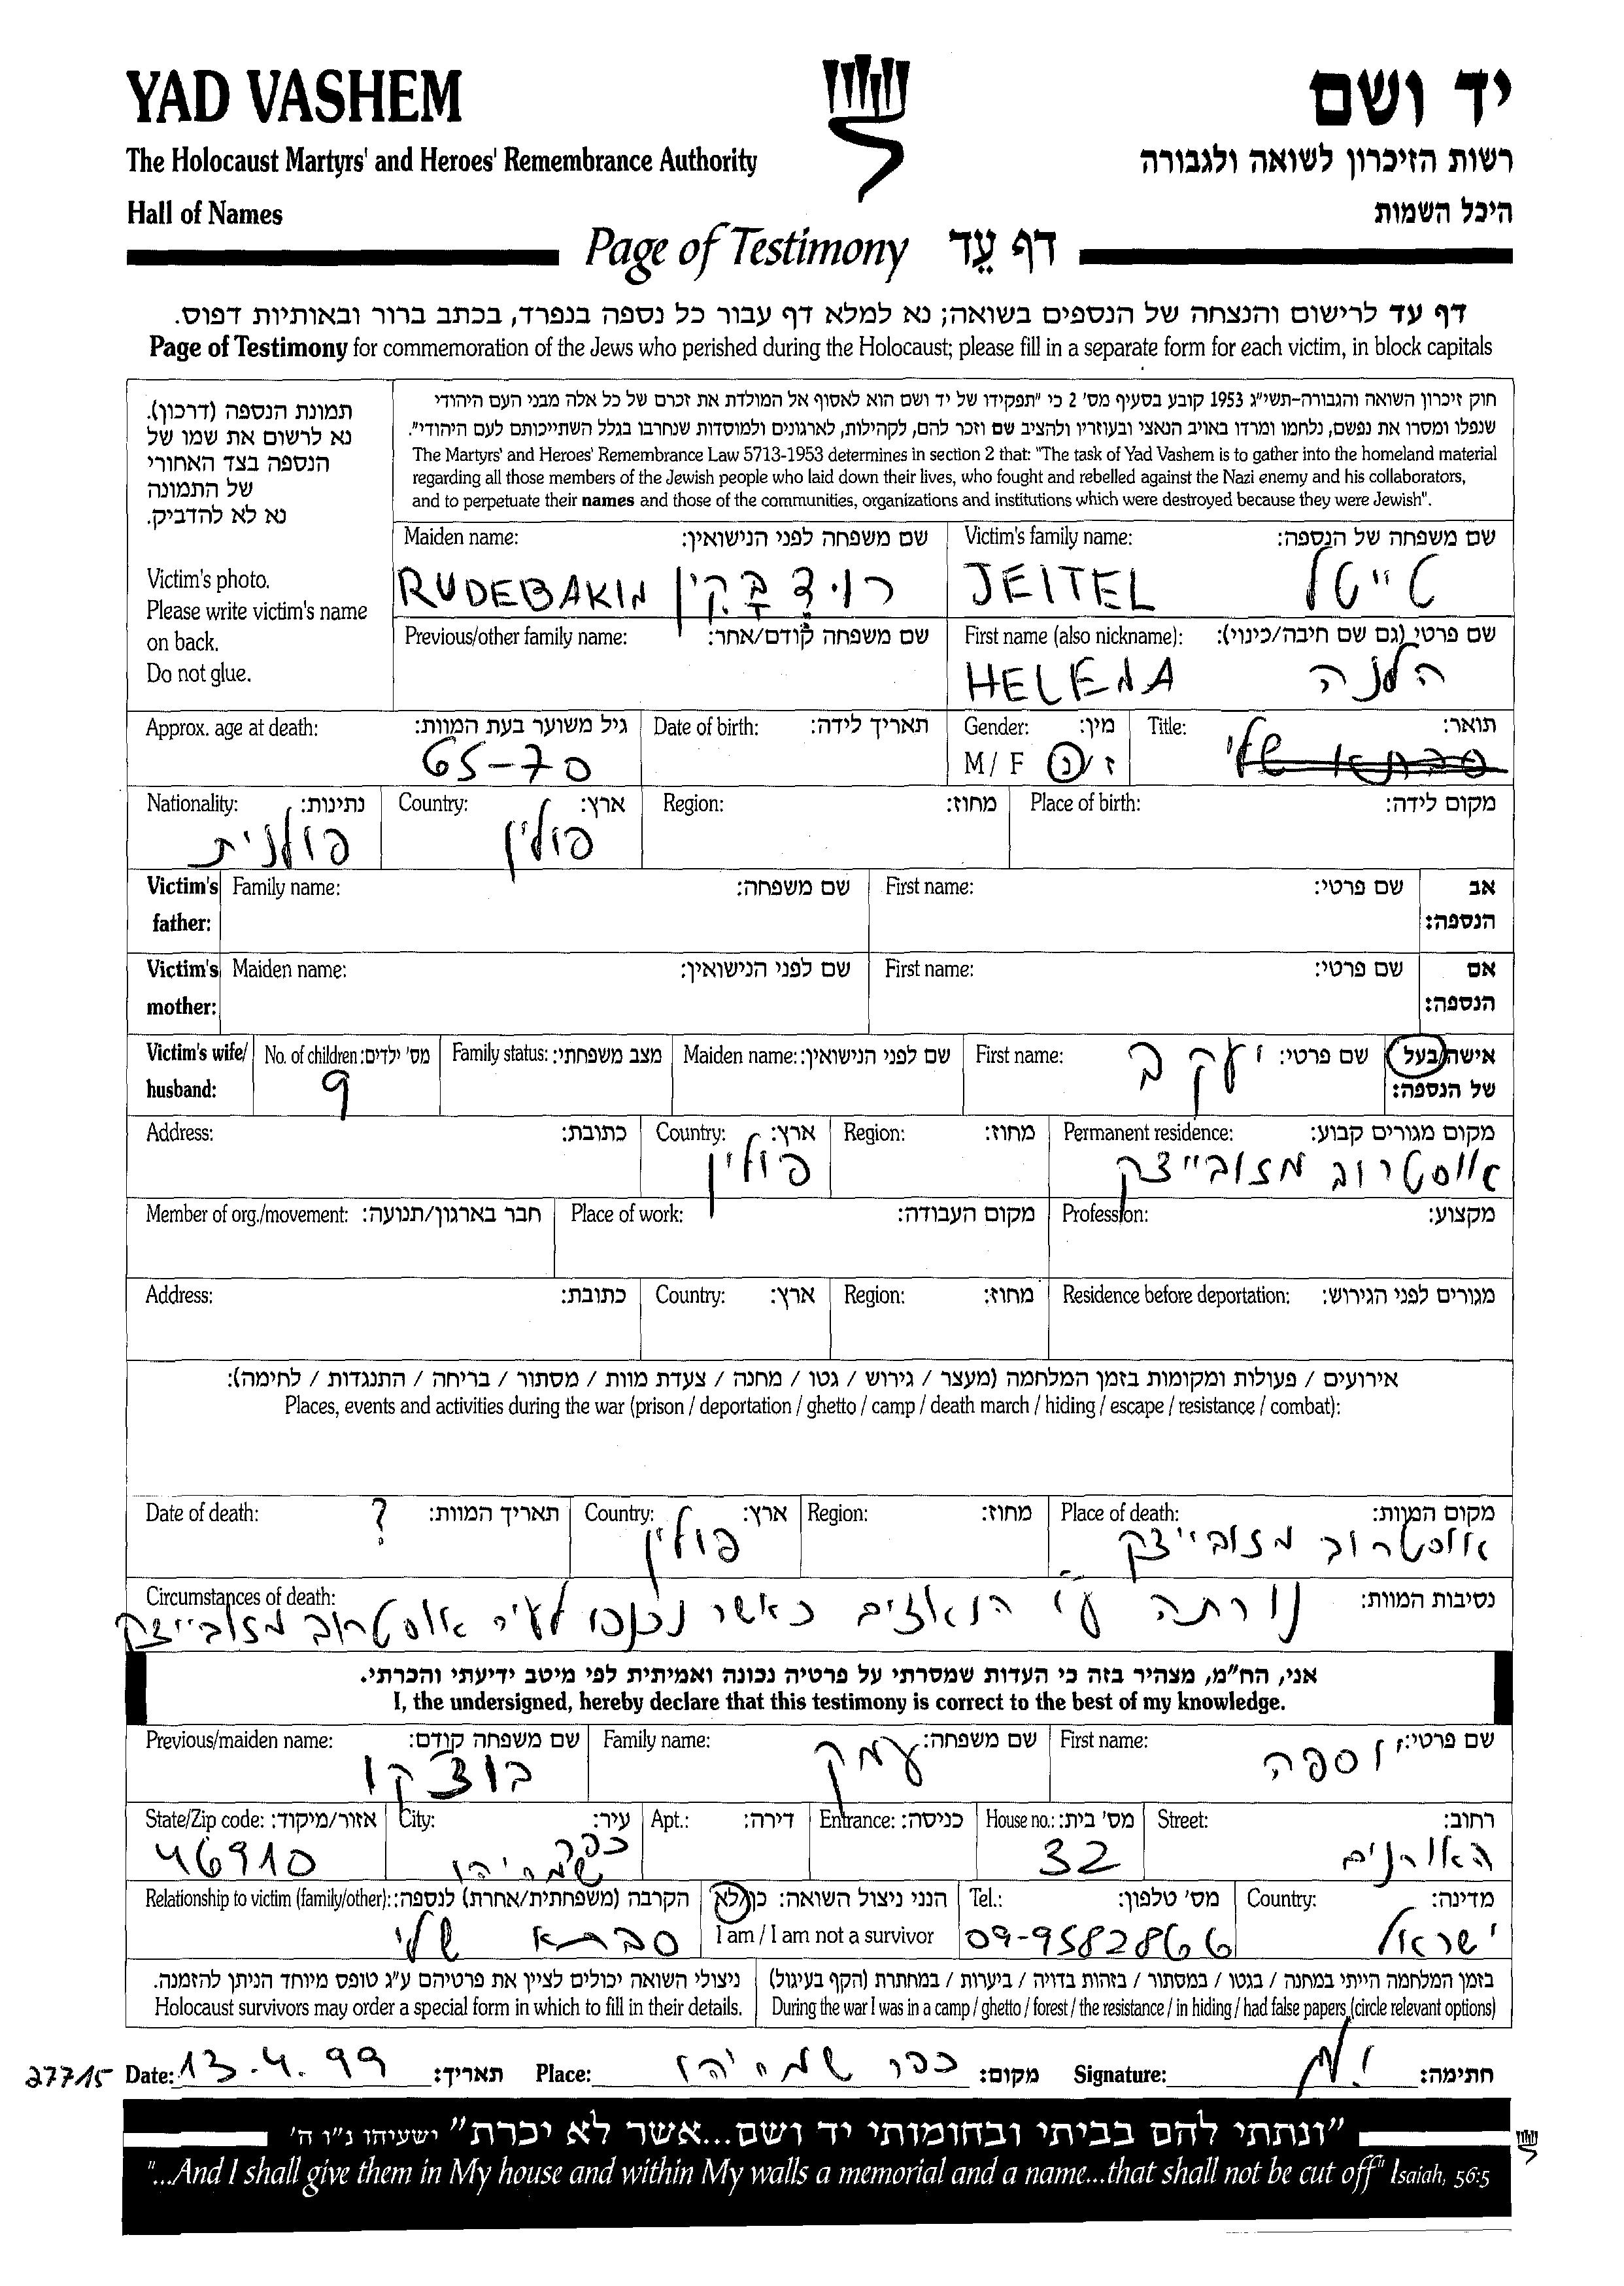 YAD VASHEM יד ושם
The Holocaust Martyrs' and Heroes' Remembrance Authority רשות הזיכרון לשואה ולגבורה
Hall of Names היכל השמות
Page of Testimony דף עֵד
דף עד לרישום והנצחה של הנספים בשואה; נא למלא דף עבור כל נספה בנפרד, בכתב ברור ובאותיות דפוס.
Page of Testimony for commemoration of the Jews who perished during the Holocaust; please fill in a separate form for each victim, in block capitals
תמונת הנספה (דרכון).
נא לרשום את שמו של
הנספה בצד האחורי
של התמונה
נא לא להדביק.
Victim's photo.
Please write victim's name
on back.
Do not glue.
חוק זיכרון השואה והגבורה-תשי"ג 1953 קובע בסעיף מס' 2 כי "תפקידו של יד ושם הוא לאסוף אל המולדת את זכרם של כל אלה מבני העם היהודי
שנפלו ומסרו את נפשם, נלחמו ומרדו באויב הנאצי ובעוזריו ולהציב שם וזכר להם, לקהילות, לארגונים ולמוסדות שנחרבו בגלל השתייכותם לעם היהודי".
The Martyrs' and Heroes' Remembrance Law 5713-1953 determines in section 2 that: "The task of Yad Vashem is to gather into the homeland material
regarding all those members of the Jewish people who laid down their lives, who fought and rebelled against the Nazi enemy and his collaborators,
and to perpetuate their names and those of the communities, organizations and institutions which were destroyed because they were Jewish".
Maiden name: שם משפחה לפני הנישואין: Victim's family name: שם משפחה של הנספה:
RUDEBAKIN רוידבקין JEITEL טייטל
Previous/other family name: שם משפחה קודם/אחר: First name (also nickname): שם פרטי (גם שם חיבה/כינוי):
HELENA הלנה
Approx. age at death: גיל משוער בעת המוות: Date of birth: תאריך לידה: Gender: מין: Title: תואר:
65-70 M / F ז / נ סבתא שלי
Nationality: נתינות: Country: ארץ: Region: מחוז: Place of birth: מקום לידה:
פולנית פולין
Victim's father: Family name: שם משפחה: First name: שם פרטי: אב הנספה:
Victim's mother: Maiden name: שם לפני הנישואין: First name: שם פרטי: אם הנספה:
Victim's wife/ husband: No. of children: מס' ילדים: Family status: מצב משפחתי: Maiden name: שם לפני הנישואין: First name: שם פרטי: אישה/בעל של הנספה:
9 יעקב
Address: כתובת: Country: ארץ: Region: מחוז: Permanent residence: מקום מגורים קבוע:
פולין אוסטרוב מזובייצק
Member of org./movement: חבר בארגון/תנועה: Place of work: מקום העבודה: Profession: מקצוע:
Address: כתובת: Country: ארץ: Region: מחוז: Residence before deportation: מגורים לפני הגירוש:
אירועים / פעולות ומקומות בזמן המלחמה (מעצר / גירוש / גטו / מחנה / צעדת מוות / מסתור / בריחה / התנגדות / לחימה):
Places, events and activities during the war (prison / deportation / ghetto / camp / death march / hiding / escape / resistance / combat):
Date of death: תאריך המוות: Country: ארץ: Region: מחוז: Place of death: מקום המוות:
? פולין אוסטרוב מזובייצק
Circumstances of death: נסיבות המוות:
נורתה ע"י הנאצים כאשר נכנסו לעיר אוסטרוב מזובייצק
אני, הח"מ, מצהיר בזה כי העדות שמסרתי על פרטיה נכונה ואמיתית לפי מיטב ידיעתי והכרתי.
I, the undersigned, hereby declare that this testimony is correct to the best of my knowledge.
Previous/maiden name: שם משפחה קודם: Family name: שם משפחה: First name: שם פרטי:
בוצקו עמק יוספה
State/Zip code: אזור/מיקוד: City: עיר: Apt.: דירה: Entrance: כניסה: House no.: מס' בית: Street: רחוב:
46910 כפר שמריהו 32 האורנים
Relationship to victim (family/other): הקרבה (משפחתית/אחרת) לנספה: הנני ניצול השואה: כן/לא Tel.: מס' טלפון: Country: מדינה:
סבתא שלי I am / I am not a survivor 09-9582866 ישראל
ניצולי השואה יכולים לציין את פרטיהם ע"ג טופס מיוחד הניתן להזמנה. בזמן המלחמה הייתי במחנה / בגטו / במסתור / בזהות בדויה / ביערות / במחתרת (הקף בעיגול)
Holocaust survivors may order a special form in which to fill in their details. During the war I was in a camp / ghetto / forest / the resistance / in hiding / had false papers (circle relevant options)
27715 Date: 13.4.99 תאריך: Place: כפר שמריהו מקום: Signature: חתימה:
"ונתתי להם בביתי ובחומותי יד ושם...אשר לא יכרת" ישעיהו נ"ו ה'
"...And I shall give them in My house and within My walls a memorial and a name...that shall not be cut off" Isaiah, 56:5